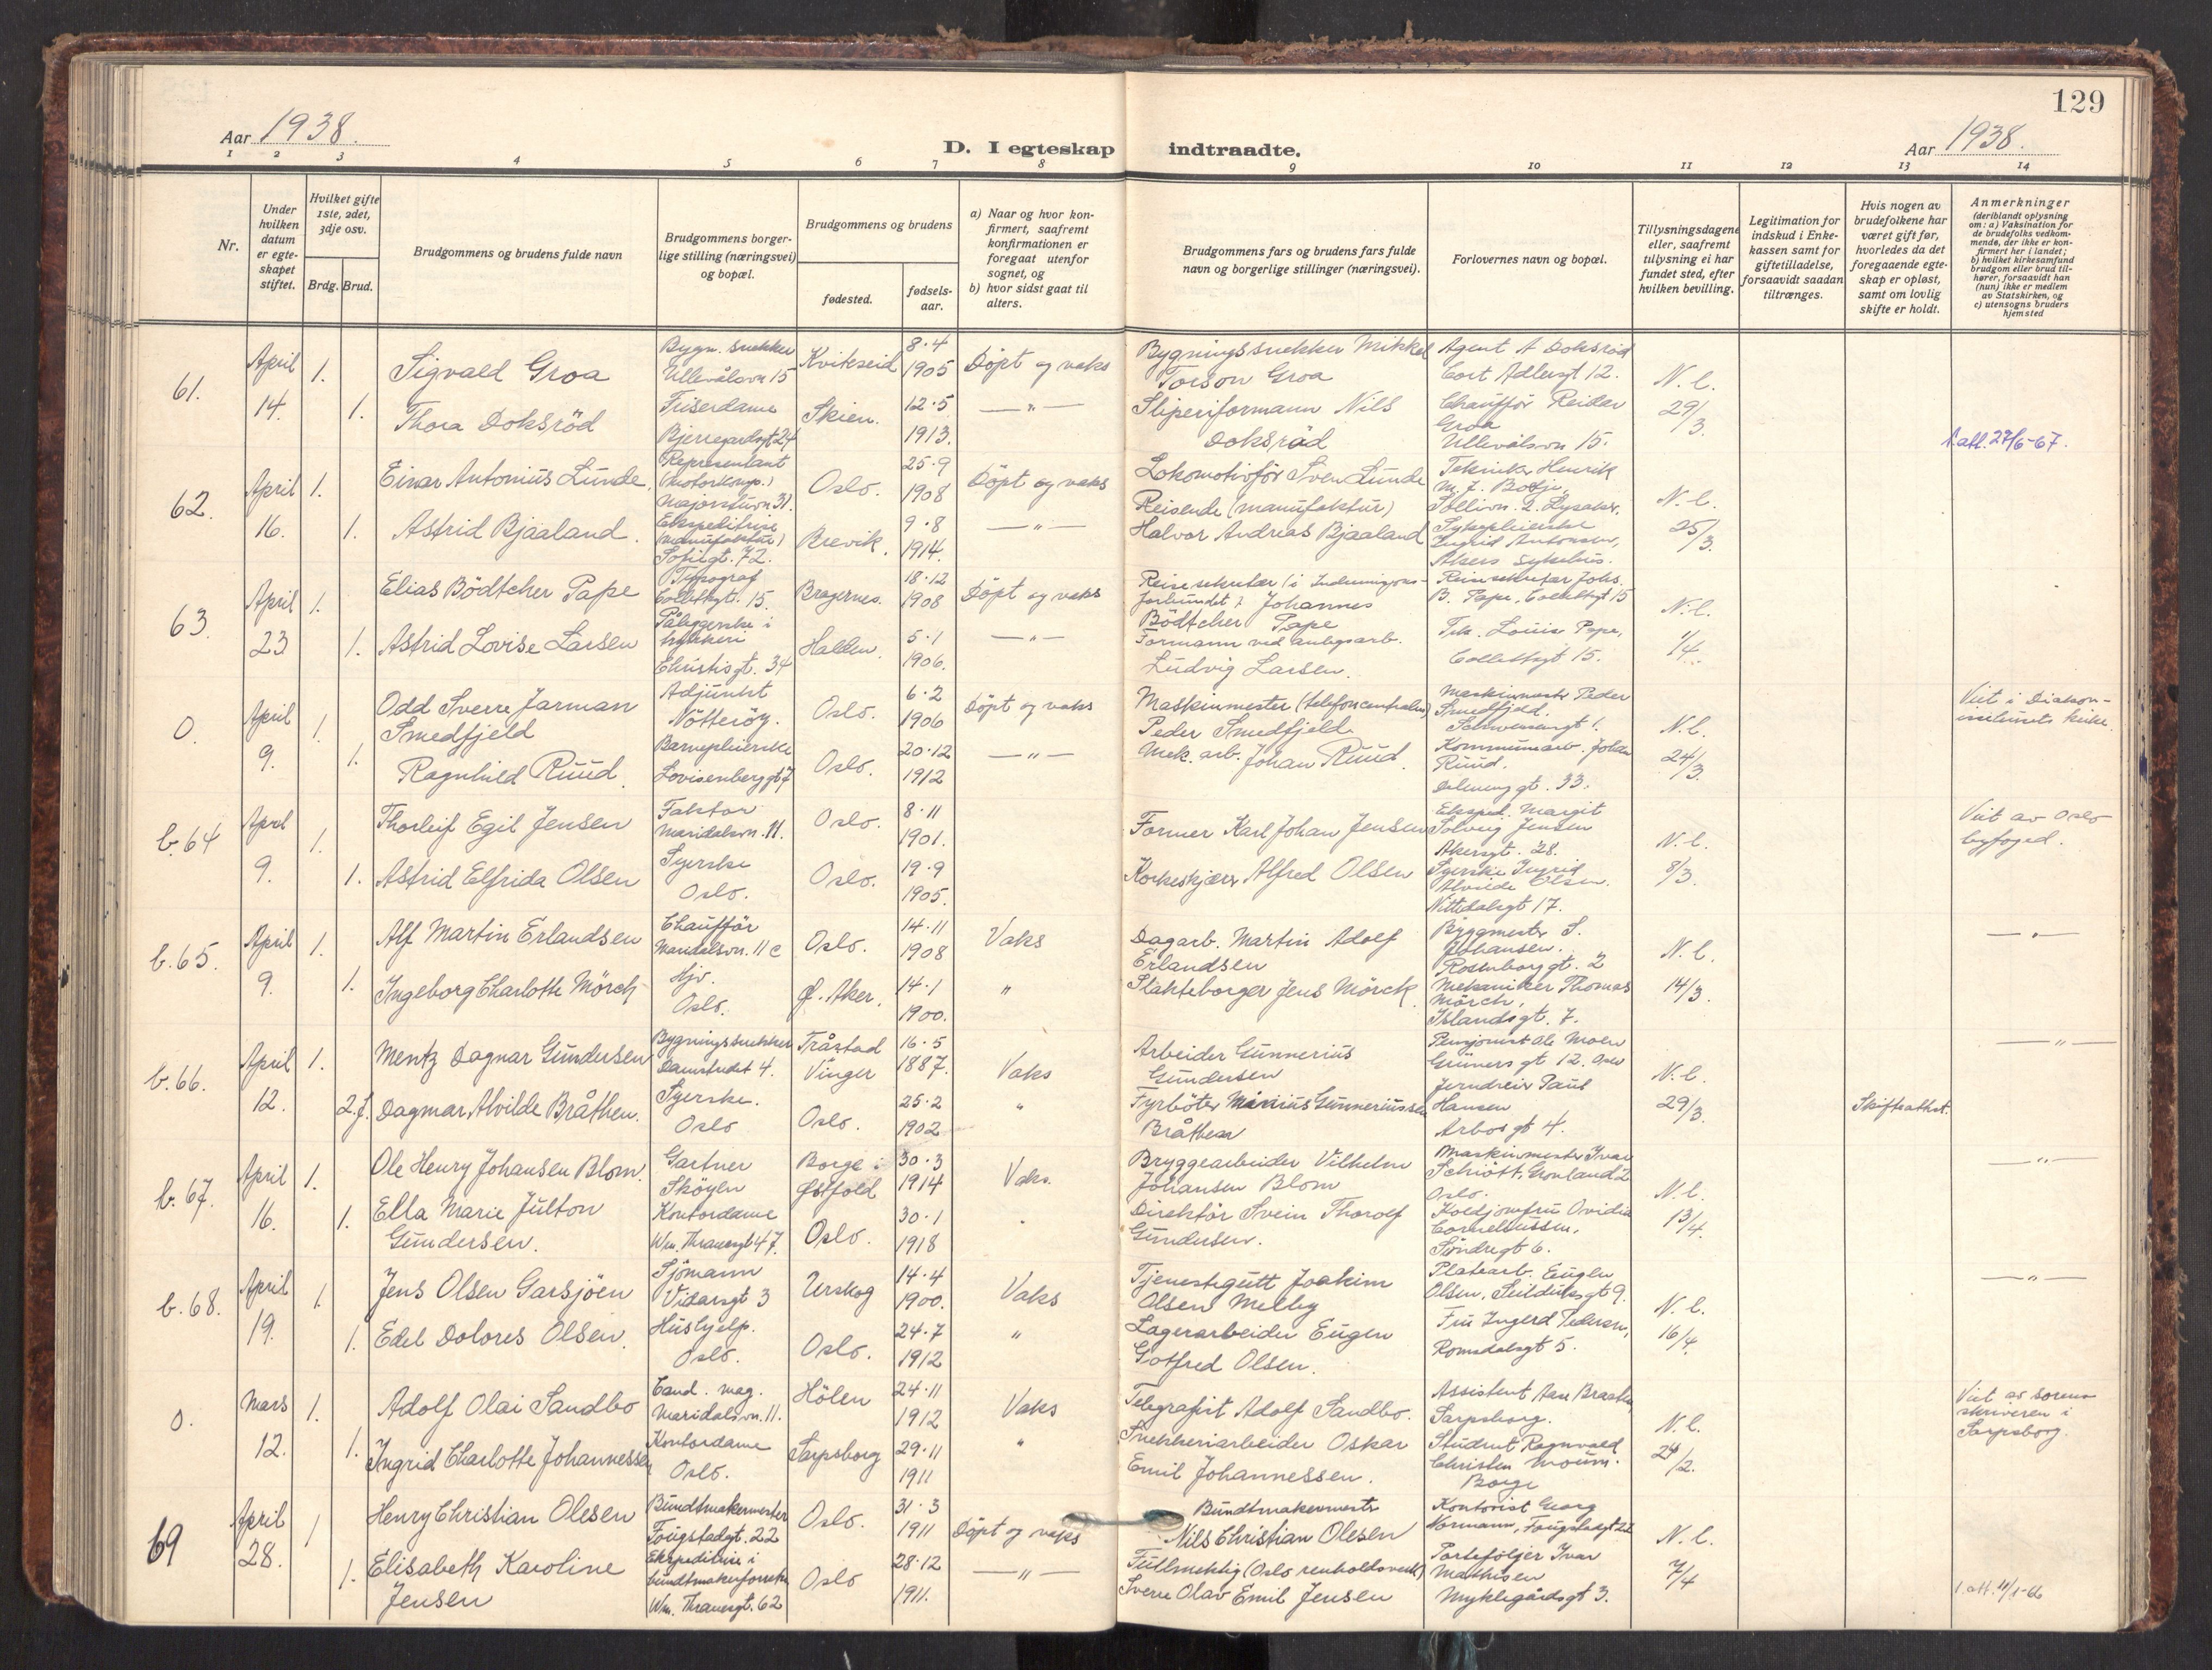 129
Aar 1938.
D. I egteskap indtraadte.
Aar 1938.
1 2 3 4 5 6 7 8 9 10 11 12 13 14
Nr.
Under hvilken datum er egteskapet stiftet.
Hvilket gifte 1ste, 2det, 3dje osv.
Brdg. Brud.
Brudgommens og brudens fulde navn
Brudgommens borgerlige stilling (næringsvei) og bopæl.
Brudgommens og brudens
fødested.
fødselsaar.
a) Naar og hvor konfirmert, saafremt konfirmationen er foregaat utenfor sognet, og
b) hvor sidst gaat til alters.
Brudgommens fars og brudens fars fulde navn og borgerlige stillinger (næringsvei).
Forlovernes navn og bopæl.
Tillysningsdagene eller, saafremt tillysning ei har fundet sted, efter hvilken bevilling.
Legitimation for indskud i Enkekassen samt for giftetilladelse, forsaavidt saadan tiltrænges.
Hvis nogen av brudefolkene har været gift før, hvorledes da det foregaaende egteskap er opløst, samt om lovlig skifte er holdt.
Anmerkninger
(deriblandt oplysning om: a) Vaksination for de brudefolks vedkommende, der ikke er konfirmert her i landet;
b) hvilket kirkesamfund brudgom eller brud tilhører, forsaavidt han (hun) ikke er medlem av Statskirken, og
c) utensogns bruders hjemsted
61. April 14. 1.
Sigvald Groa
Bygn. snekker Ullevålsvn 15
Kviteseid
8.4 1905
Döpt og vaks
Bygningssnekker Mikkel Torson Groa
Agent A Doksröd
Cort Adlersgt 12.
N.l. 29/3.
1.
Thora Doksröd
Friserdame
Bjerregardsgt 24
Skien.
12.5 1913.
— " —
Sliperiformann Nils Doksröd
Chaufför Reidar Groa
Ullevålsvn 15.
1.att. 27/6-67.
62. April 16. 1.
Einar Antonius Lunde
Representant (motorkomp.)
Majorstuvn 31.
Oslo.
25.9 1908
Döpt og vaks
Lokomotivför Sven Lunde
Tekniker Henrik M. J. Botje
Sollivn. 2. Lysaker.
N.l. 25/3.
1.
Astrid Bjaaland.
Ekspeditrise (manufaktur)
Sofiegt. 72.
Brevik.
9.8 1914.
— " —
Reisende (manufaktur)
Halvor Andreas Bjaaland
Sykepleierske Ingrid Antonsen,
Akers sykehus.
63. April 23 1.
Elias Bödtcher Pape
Typograf
Collettsgt. 15.
Bragernes.
18.12 1908
Döpt og vaks
Reisesekretær (i Indremisjonsforbundet) Johannes Bödtcher Pape
Reisesekretær Johs. B. Pape, Collettsgt 15
N.l. 1/4.
1.
Astrid Lovise Larsen
Påleggerske i trykkeri
Christiesgt. 34
Halden.
5.1 1906.
— " —
Formann ved anlegsarb.
Ludvig Larsen.
Tek. Louise Pape,
Collettsgt 15.
0. April 9. 1.
Odd Sverre Jarman Smedfjeld
Adjunkt
Nötteröy.
Oslo.
6.2 1906
Döpt og vaks
Maskinmester (telefoncentralen)
Peder Smedfjeld.
Maskinmester Peder Smedfjeld.
Schwensensgt 1.
N.l. 24/3.
Viet i Diakonissehusets kirke.
1.
Ragnhild Ruud.
Barnepleierske
Lovisenberggt 7
Oslo.
20.12 1912
— " —
Mek. arb. Johan Ruud.
Kommunearb. Johan Ruud.
Dalenenggt. 33.
b.64 April 9. 1.
Thorleif Egil Jensen
Faktor
Maridalsvn. 11.
Oslo.
8.11 1901.
Former Karl Johan Jensen
Eksped. Margit Solveig Jensen
Akersgt. 28.
N.l. 8/3.
Viet av Oslo byfoged.
1.
Astrid Elfrida Olsen
Syerske
Oslo.
Oslo.
19.9 1905.
Korkeskjærer Alfred Olsen
Syerske Ingrid Alvilde Olsen.
Nittedalsgt 17.
b.65. April 9. 1.
Alf Martin Erlandsen
Chaufför
Maridalsvn. 11 c
Oslo.
14.11 1908
Vaks
Dagarb. Martin Adolf Erlandsen
Byggmester S. Johansen.
Rosenborggt. 2
N.l. 14/3.
— " —
1.
Ingeborg Charlotte Mörch
Hjv.
Oslo.
Ø. Aker.
14.1 1900.
"
Stakteborger Jens Mörck
Mekaniker Thomas Mörch,
Islandsgt. 7.
b.66. April 12. 1.
Mentz Dagnar Gundersen
Bygningssnekker
Damstredet 4.
Tråstad Vinger
16.5 1887.
Vaks
Arbeider Gunnerius Gundersen
Pensjonist Ole Moen
Grüners gt 12. Oslo
N.l. 29/3.
— " —
2.f.
Dagmar Alvilde Bråthen.
Syerske.
Oslo
Oslo.
25.2 1902
"
Fyrböter Marius Gunneriussen Bråthen
Jerndreier Paul Hansen
Arbos gt 4.
Skifteattest.
b.67. April 16. 1.
Ole Henry Johansen Blom.
Gartner
Sköyen
Borge i Østfold
30.3 1914
Vaks.
Bryggearbeider Vilhelm Johansen Blom
Maskinmester Ivar Schiött, Grönland 2
Oslo.
N.l. 13/4.
— " —
1.
Ella Marie Julton Gundersen.
Kontordame
Wm. Thranesgt 47.
Oslo.
30.1 1918
"
Direktör Svein Thorolf Gundersen.
Koldjomfru Ovidia Corneliussen,
Söndregt 6.
b.68. April 19. 1.
Jens Olsen Garsjöen
Sjömann
Vidarsgt 3
Urskog
14.4 1900.
Vaks
Tjenestegutt Joakim Olsen Melby
Platearb. Eugen Olsen, Seilduksgt 9.
N.l. 16/4.
— " —
1.
Edel Dolores Olsen.
Hushjelp.
Oslo.
Oslo.
24.7 1912
"
Lagerarbeider Eugen Gotfred Olsen.
Fru Ingerd Pedersen,
Romsdalsgt 5.
0. Mars 12. 1.
Adolf Olai Sandbo
Cand. mag.
Maridalsvn. 11.
Hölen
24.11 1912
Vaks
Telegrafist Adolf Sandbo.
Assistent Aase Braathen
Sarpsborg.
N.l. 24/2.
Viet av sorenskriveren i Sarpsborg.
1.
Ingrid Charlotte Johannessen
Kontordame
Oslo.
Sarpsborg
29.11 1911
"
Snekkeriarbeider Oskar Emil Johannessen.
Student Ragnvald Christen Moum.
Borge
69 April 28. 1
Henry Christian Olesen
Bundtmakermester
Fougstadgt. 22
Oslo.
31.3 1911
Döpt og vaks
Bundtmakermester
Nils Christian Olesen
Kontorist Georg Normann, Fougstadgt 22
N.l. 7/4
1.
Elisabeth Karoline Jensen
Ekspeditrise i bundtmakerforretn.
Wm. Thranesgt. 62
Oslo
28.12 1911.
— " —
Fullmektig (Oslo renholdsverk)
Sverre Olav Emil Jensen
Portefoljer Ivar Mathisen
Myklegårdsgt 3.
1.att. 11/1-66